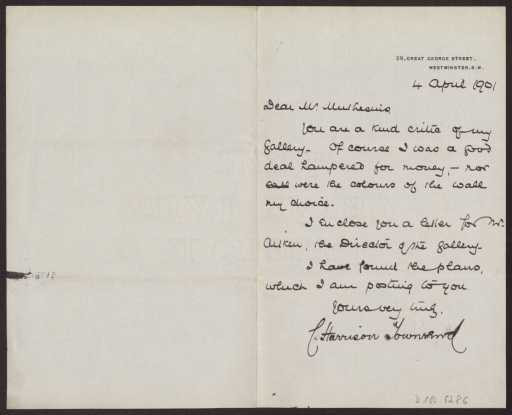 29, GREAT GEORGE STREET,
WESTMINSTER, S.W.
4 April 1901
Dear Mr. Muthesius,
You are a kind critic of my
Gallery. Of course I was a good
deal hampered for money, – nor
were the colours of the wall
my choice.
I enclose you a letter for Mr.
Aitken, the Director of the Gallery.
I have found the plans,
which I am posting to you
Yours very truly,
C. Harrison Townsend